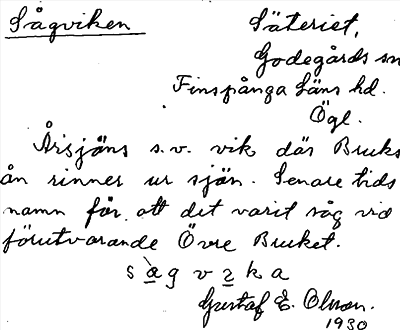 Sågviken
Säteriet,
Godegårds sn
Finspånga läns hd.
Ögl.
Årsjöns s.v. vik där Bruks
ån rinner ur sjön. Senare tids
namn för att det varit såg vid
förutvarande Övre Bruket.
s à g v ɪ k a
Gustaf E. Olsson.
1930